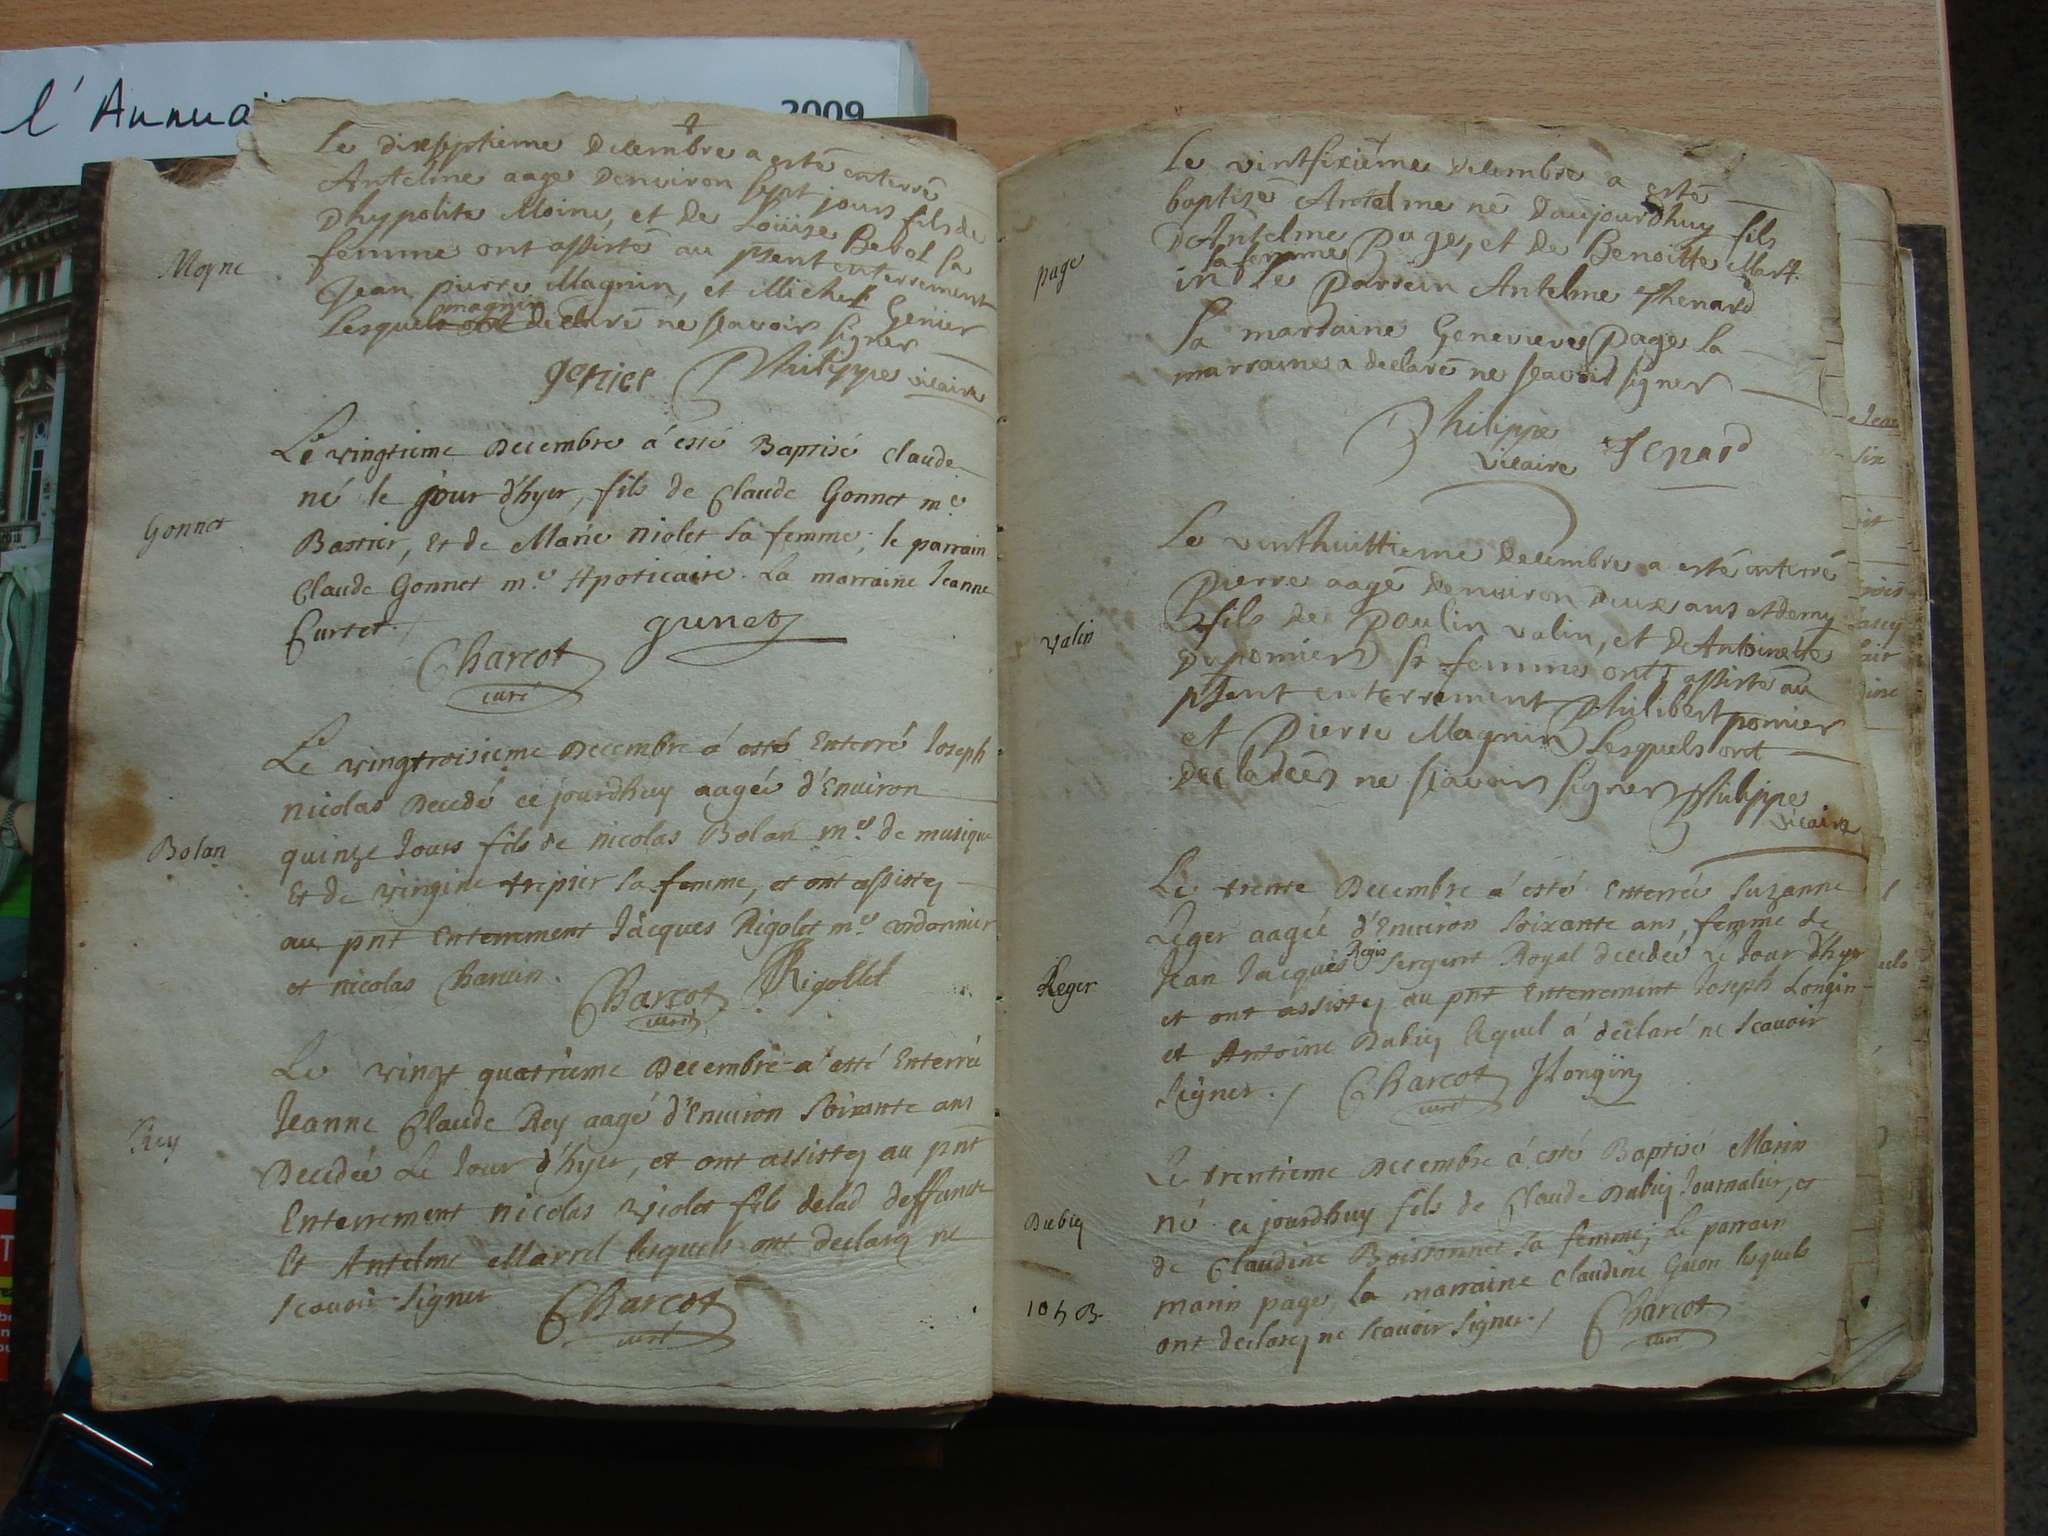 l'Annuai
2009
Le dixseptieme Decembre a esté enterré
Antelme aage denviron sept jours fils de
Moyne
Dhypolite Moine, et de Loüise Bevel sa
femme ont assisté au psent enterrement
Jean pierre Magnin, et Michel Genier
magnin
Lesquels declaré ne scavoir signer
genier Philippe vicaire
Le vingtieme Decembre á esté Baptisé claude
né le jour d'hyer, fils de Claude Gonnet me
Gonnet
Bastier, et de Marie Niolet sa femme; le parrain
Claude Gonnet me Apoticaire. La marraine Jeanne
Curtet
Charcot gunet
curé
Le vingtroisieme Decembre á esté Enterré Joseph
nicolas Decedé ce jourdhuy aagéé d'Environ
quinze Jours fils de nicolas Bolan me de musique
Bolan
Et de virgine tripier sa femme, et ont assistez
au pnt Enterrement Jacques Rigolet me cordonnier
et nicolas Charvin.
Charcot Rigollet
curé
Le vingt quatrieme Decembre a' esté Enterrée
Jeanne Claude Rey aagé d'Environ Soixante ans
Rey
Decedée Le Jour d'hyer, et ont assistez au pnt
Enterrement nicolas violet fils delad deffuncte
Et Antelme Marrel lesquels ont declarez ne
scavoir signer Charcot
curé
Le vintsixiéme decembre a esté
baptisé Antelme né daujourdhuy fils
D'Antelme Page, et de Benoitte Mart
page
sa femme
in Le parrein Antelme Thenard
La mardaine Genevieve Page la
marraine a declaré ne scavoir signer
Philippe Tenard
vicaire
Le vinthuittieme Decembre a esté enterré
Pierre aagé denviron deux ans et demy
fils de Paulin valin, et de Antoinette
valin
pomier sa femme ont assisté au
psent enterrement Philibert pomier
et Pierre Magnin Lesquels ont
declareés ne scavoir signer Philippe
vicaire
Le trente Decembre á esté Enterrée Suzanne
Leger aagéé d'Environ Soixante ans, femme de
Regis
Jean Jacques Sergent Royal decedéé Le Jour d'hyer
Reger
et ont assistez au pnt Enterrement Joseph Longin
et Antoine Dubiez lequel á declaré ne scavoir
signer. / Charcot JLongin
curé
Le trentieme Decembre á esté Baptisé Marin
né ce jourdhuy fils de Claude Dubiez Journalier, et
Dubiez
de Claudine Boissonnet sa femme; Le parrain
marin page, la marraine Claudine Guon lesquels
ont declarez ne scavoir signer. / Charcot
curé